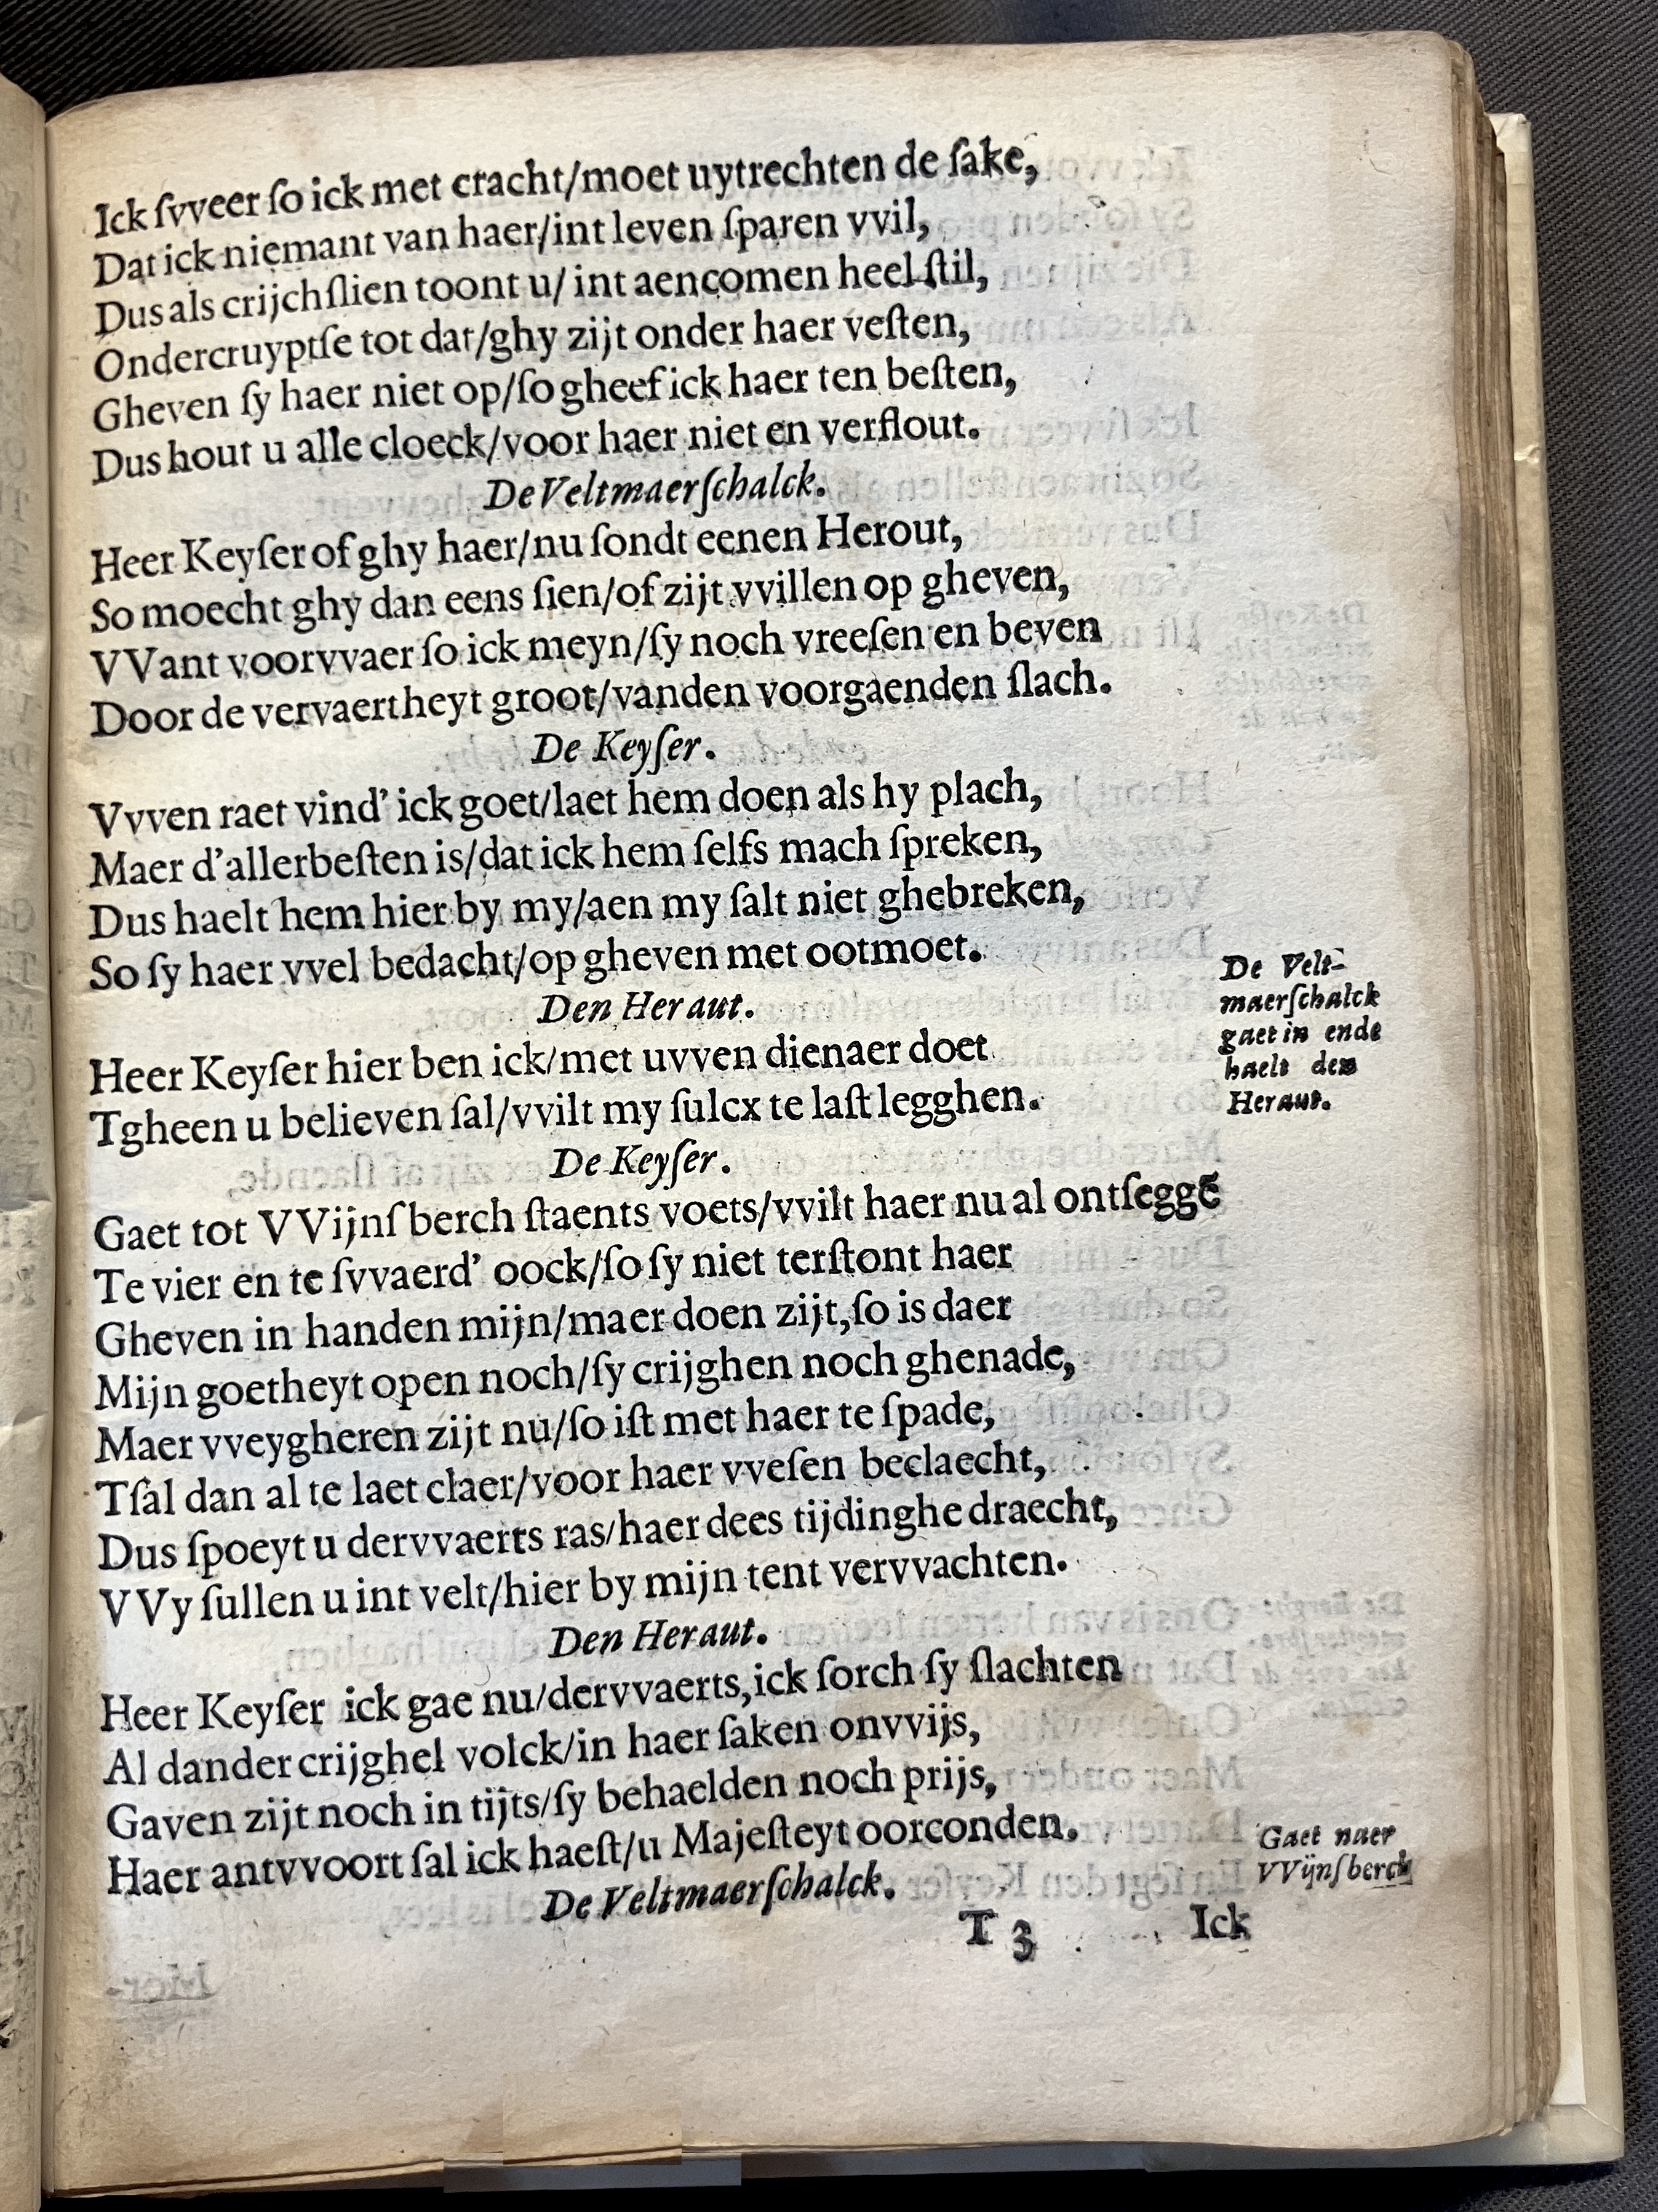 Ick ſvveer ſo ick met cracht/moet uytrechten de ſake,
Dat ick niemant van haer/int leven ſparen vvil,
Dus als crijchſlien toont u/ int aencomen heel ſtil,
Ondercruyptſe tot dat/ghy zijt onder haer veſten,
Gheven ſy haer niet op/ſo gheef ick haer ten beſten,
Dus hout u alle cloeck/voor haer niet en verflout.
De Veltmaerſchalck.
Heer Keyſer of ghy haer/nu ſondt eenen Herout,
So moecht ghy dan eens ſien/of zijt vvillen op gheven,
VVant voorvvaer ſo ick meyn/ſy noch vreeſen en beven
Door de vervaertheyt groot/vanden voorgaenden ſlach.
De Keyſer.
Vvven raet vind' ick goet/laet hem doen als hy plach,
Maer d'allerbeſten is/dat ick hem ſelfs mach ſpreken,
Dus haelt hem hier by my/aen my ſalt niet ghebreken,
So ſy haer vvel bedacht/op gheven met ootmoet.
De Velt-
maerſchalck
gaet in ende
haelt den
Heraut.
Den Heraut.
Heer Keyſer hier ben ick/met uvven dienaer doet
Tgheen u believen ſal/vvilt my ſulcx te laſt legghen.
De Keyſer.
Gaet tot VVijnſberch ſtaents voets/vvilt haer nu al ontſeggē
Te vier en te ſvvaerd' oock/ſo ſy niet terſtont haer
Gheven in handen mijn/maer doen zijt,ſo is daer
Mijn goetheyt open noch/ſy crijghen noch ghenade,
Maer vveygheren zijt nu/ſo iſt met haer te ſpade,
Tſal dan al te laet claer/voor haer vveſen beclaecht,
Dus ſpoeyt u dervvaerts ras/haer dees tijdinghe draecht,
VVy ſullen u int velt/hier by mijn tent vervvachten.
Den Heraut.
Heer Keyſer ick gae nu/dervvaerts,ick ſorch ſy ſlachten
Al dander crijghel volck/in haer ſaken onvvijs,
Gaven zijt noch in tijts/ſy behaelden noch prijs,
Haer antvvoort ſal ick haeſt/u Majeſteyt oorconden.
Gaet naer
VVijnſberch
De Veltmaerſchalck.
T 3 Ick